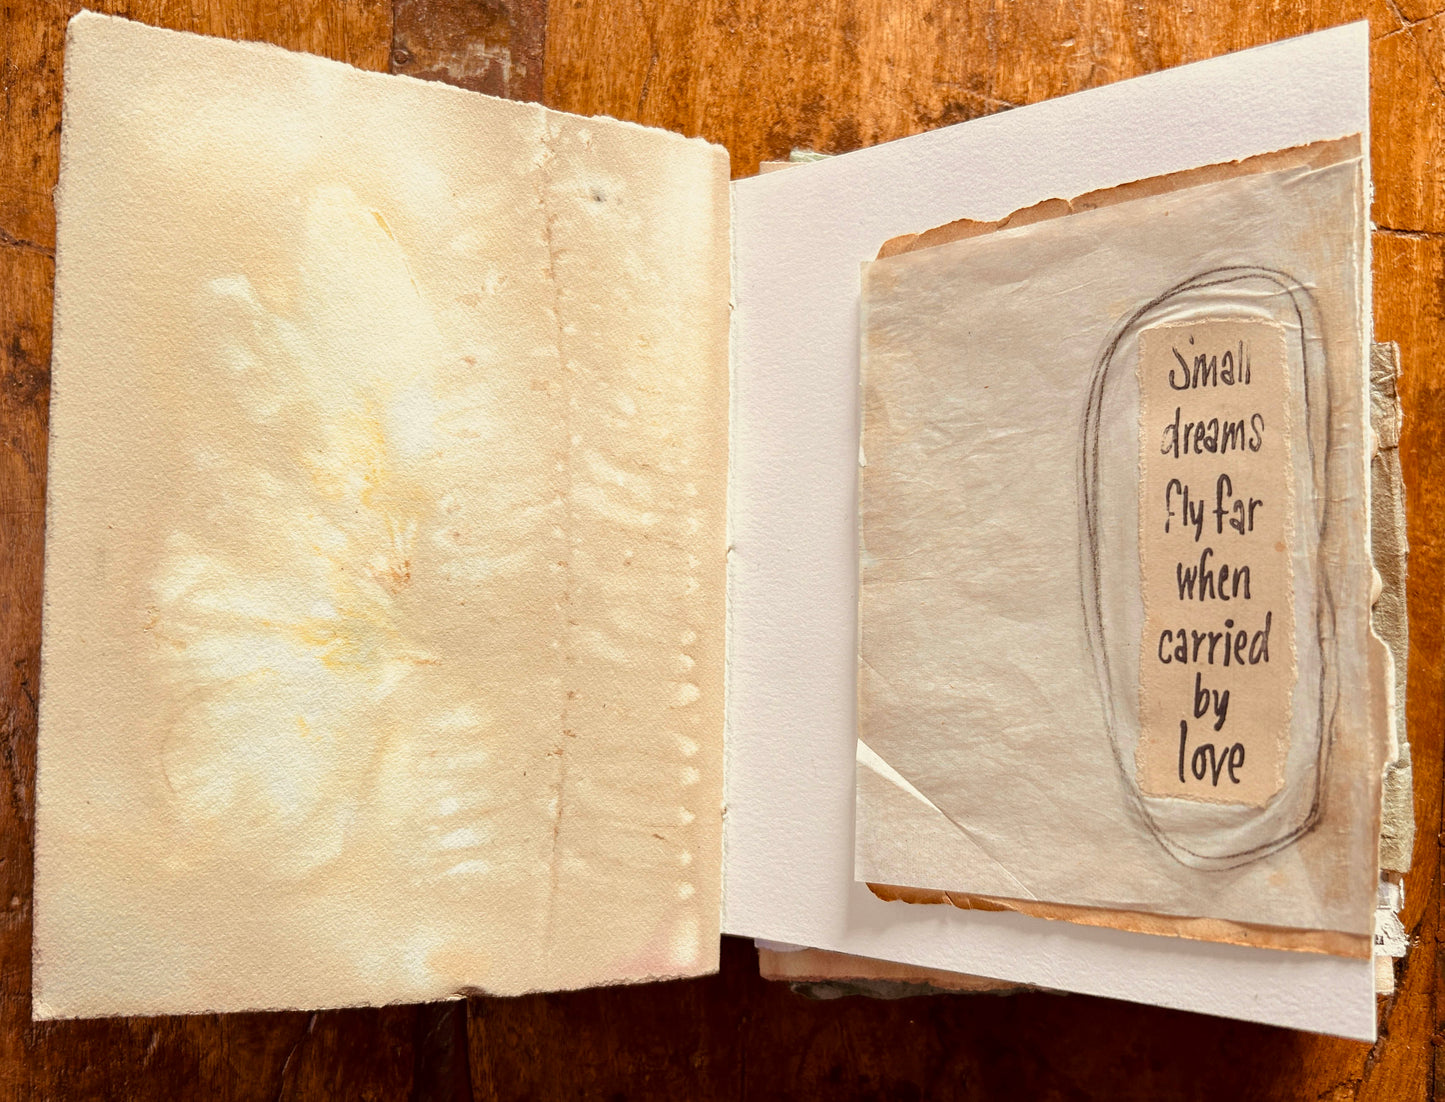 Small
dreams
fly far
when
carried
by
love